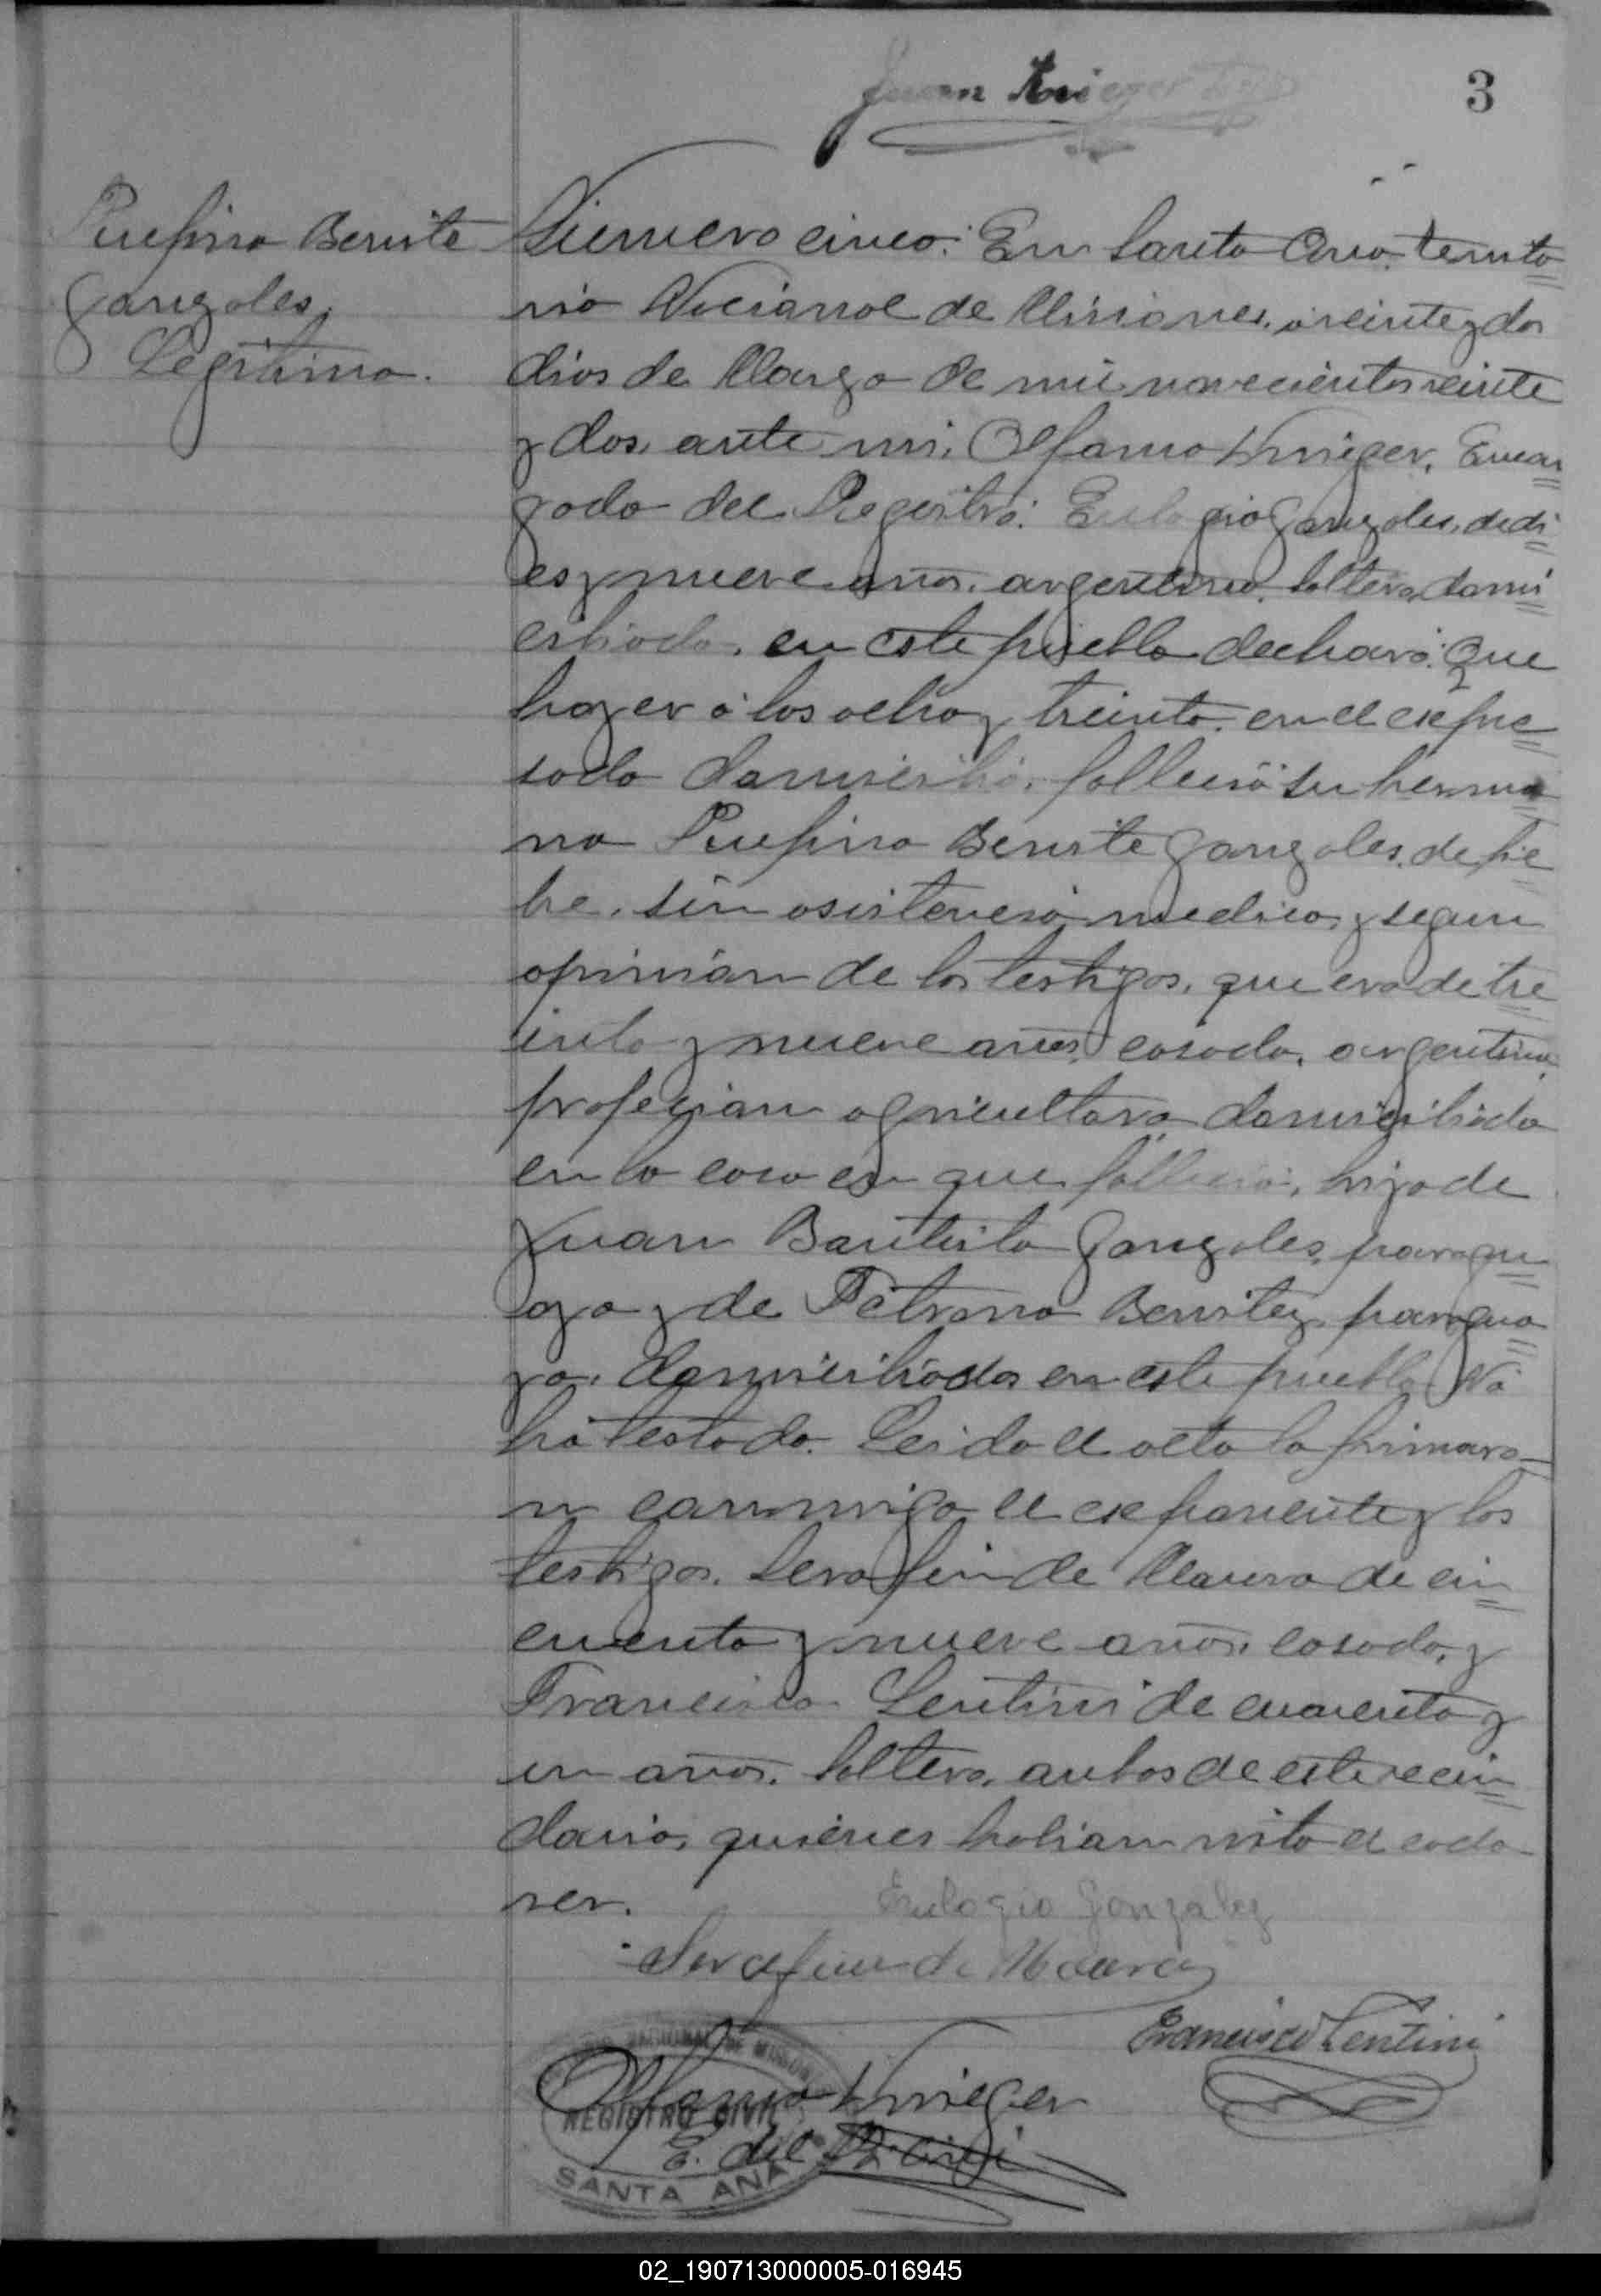 Juan Krieger
3
Rufino Benite
Gonzales.
Legitimo.
Número cinco: En Santa Ana, territo
rio Nacional de Misiones, á veinte y dos
dias de Marzo de mil novecientos veinte
y dos, ante mi, Olfanio Krieger, Encar
gado del Registro: Eulogio Gonzales, de di
es y nueve años, argentino, soltero, domi
ciliado, en este pueblo declaró: Que
hayer á las ocho y treinta, en el expre
sado domicilio, falleció su herma
no Rufino Benite Gonzales, de fie
bre, sin asistencia medica, y segun
opinión de los testigos, que era de tre
inta y nueve años, casado, argentino,
profecian agricultor domiciliado
en la casa en que falleció, hijo de
Juan Bautista Gonzales, paragu
ayo y de Petrona Benitez, paragua
ya, domiciliados en este pueblo. No
há testado. Leida el acta la firmaro
n conmigo el exponente y los
testigos, Serafin de Moura de cin
cuenta y nueve años, casado, y
Francisco Lentini de cuarenta y
un años, soltero, anbos de este vecin
dario, quienes habian visto el cada
ver.
Eulogio Gonzalez
Serafin de Moura
Francisco Lentini
Olfanio Krieger
E. del R. Civil
NACIONAL DE MISIONES
REGISTRO CIVIL
SANTA ANA
02_190713000005-016945